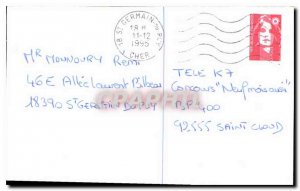 18 ST GERMAIN DU PUY
18 H
11-12
1995
CHER
MR MOUNOURY Rémi
46E Allée Laurent
18390 ST GERMAIN DU PUY
TELE K7
Concours "Neuf mois"
B.P. 400
92555 SAINT CLOUD